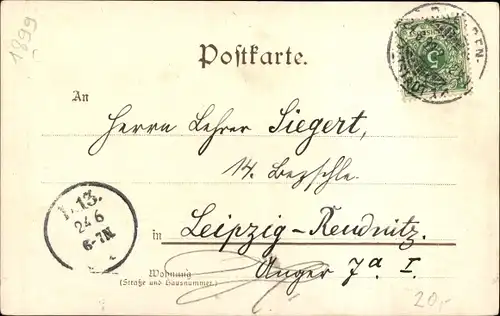 1899
Postkarte.
An
Herrn Lehrer Siegert,
14. Bezschle.
in Leipzig-Reudnitz.
Wohnung
(Straße und Hausnummer.)
Anger 7a I.
L.13.
24 6
6-7N
5
20,-